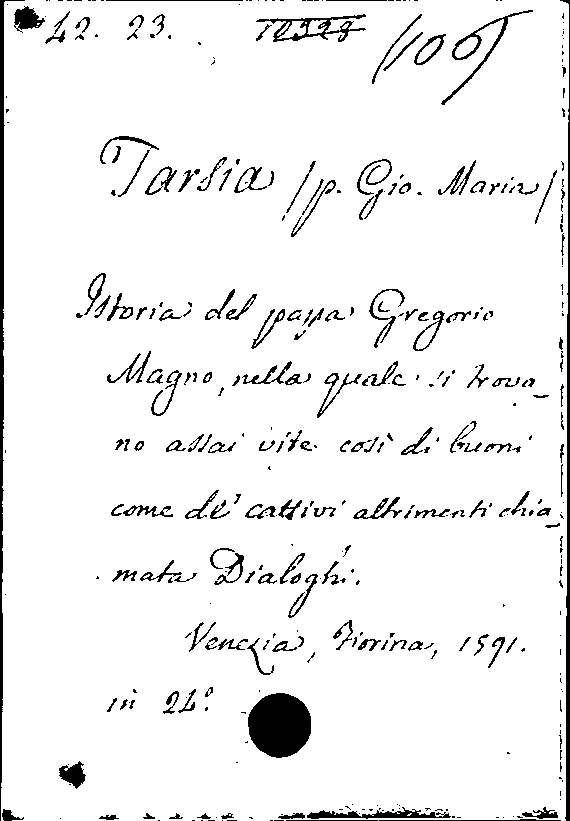 42. 23. 12398 (100)
Tarsia /p. Gio. Maria/
Istoria del papa Gregorio
Magno, nella quale si trova-
no assai vite così di buoni
come de' cattivi altrimenti chia-
mata Dialoghi.
Venezia, Fiorina, 1591.
in 24°.